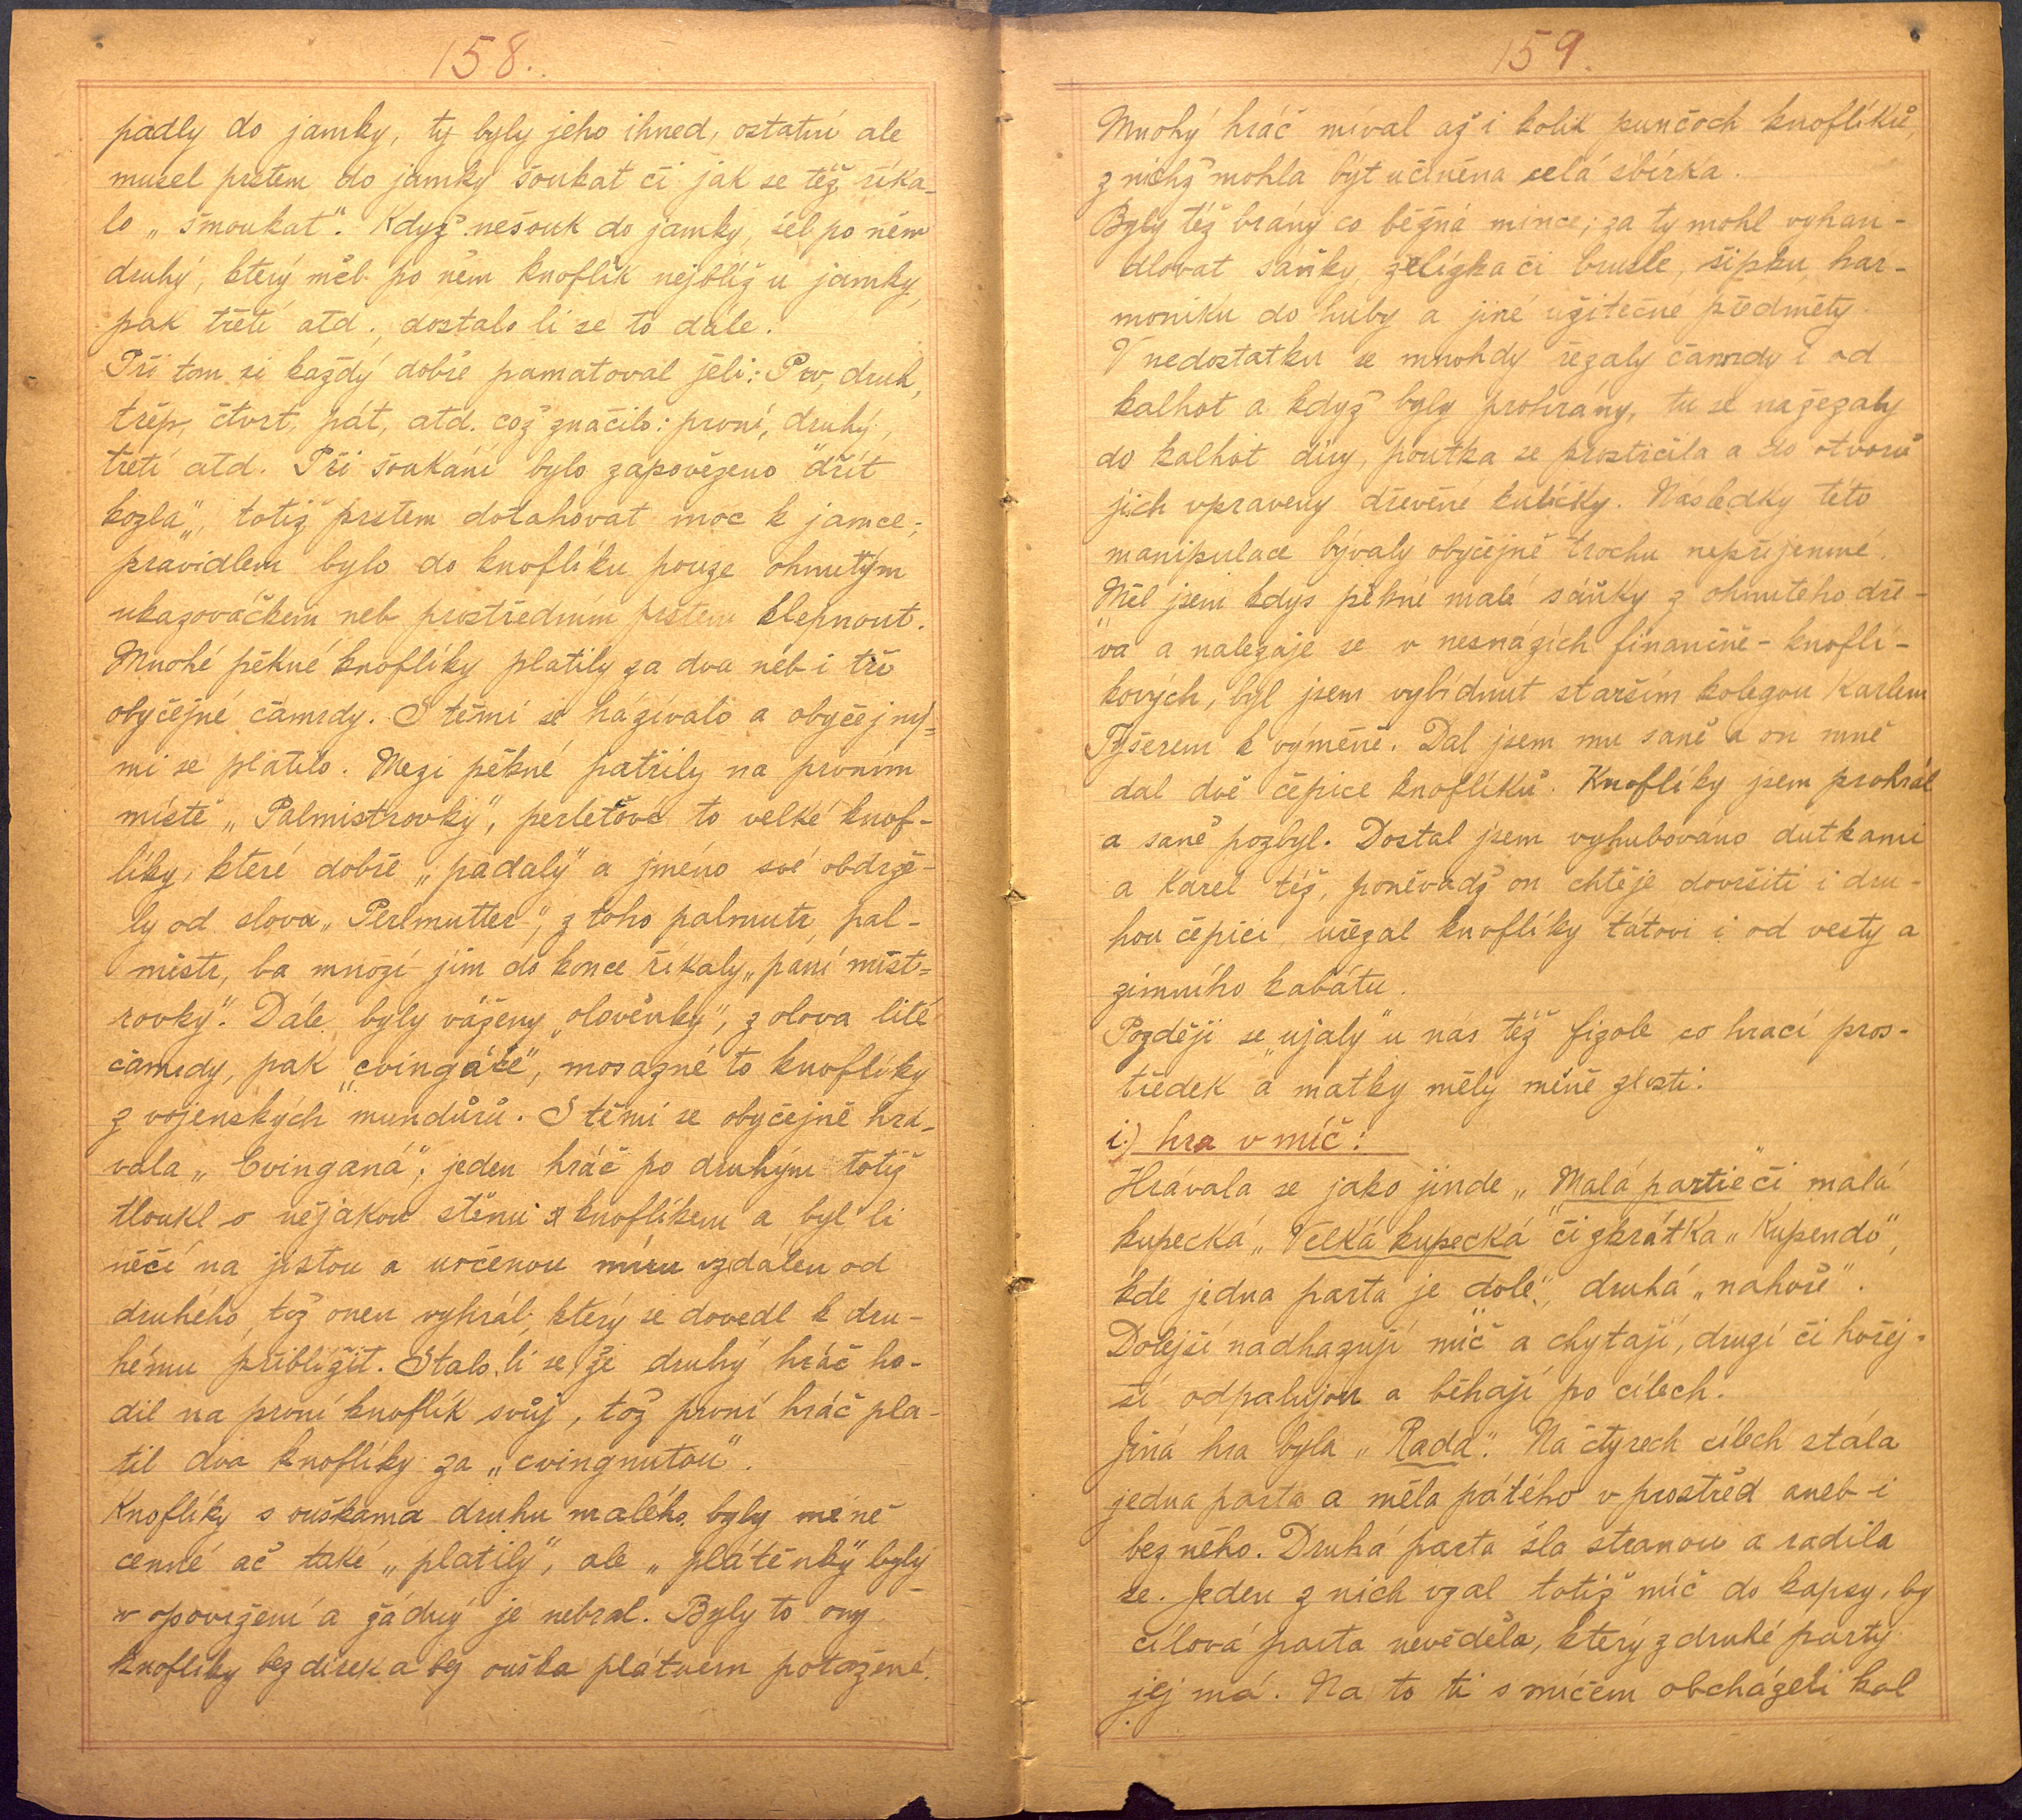 158.
padly do jamky, ty byly jeho ihned, ostatní ale
musel prstem do jamky šoukat či jak se též říka-
lo „šmoukat". Když nešouk do jamky, šel po něm
druhý, který měl po něm knoflík nejblíž u jamky,
pak třetí atd., dostalo li se to dále.
Při tom si každý dobře pamatoval jeli: Prv, druh,
třep, čtvrt, pát, atd. což značilo: první, druhý,
třetí atd. Při šoukání bylo zapovězeno "dřít
kozla", totiž prstem dotahovat moc k jamce;
pravidlem bylo do knoflíku pouze ohnutým
ukazováčkem neb prostředním prstem klepnout.
Mnohé pěkné knoflíky platily za dva neb i tři
obyčejné čamrdy. S těmi se házívalo a obyčejný-
mi se platilo. Mezi pěkné patřily na prvním
místě „Palmistrovky", perleťové to velké knof-
líky, které dobře „padaly" a jméno své obdrže-
ly od slova „Perlmutter", z toho palmutr, pal-
mistr, ba mnozí jim do konce říkaly „paní mist-
rovky". Dále byly váženy „olověnky", z olova lité
čamrdy, pak „cvingáče", mosazné to knoflíky
z vojenských mundůrů. S těmi se obyčejně hrá-
vala „Cvinganá"; jeden hráč po druhým totiž
tloukl o nějakou stěnu knoflíkem a byl li
něčí na jistou a určenou míru vzdálen od
druhého, tož onen vyhrál, který se dovedl k dru-
hému přiblížit. Stalo li se, že druhý hráč ho-
dil na první knoflík svůj, tož první hráč pla-
til dva knoflíky za „cvingnutou".
Knoflíky s ouškama druhu malého byly méně
cenné ač také „platily", ale „plátěnky" byly
v opovržení a žádný je nebral. Byly to ony
knoflíky bez dírek a bez ouška plátnem potažené.
159.
Mnohý hráč míval až i kolik punčoch knoflíků,
z nichž mohla být učiněna celá sbírka.
Byly též brány co běžná mince; za ty mohl vyhan-
dlovat sáňky, želízka či brusle, šipku, har-
moniku do huby a jiné užitečné předměty.
V nedostatku se mnohdy řezaly čamrdy i od
kalhot a když byly prohrány, tu se nařezaly
do kalhot díry, poutka se prostrčila a do otvorů
jich vpraveny dřevěné kulíčky. Následky této
manipulace bývaly obyčejně trochu nepříjemné.
Měl jsem kdys pěkné malé sáňky z ohnutého dře-
va a nalezaje se v nesnázích finančně-knoflí-
kových, byl jsem vybídnut starším kolegou Karlem
Tyšerem k výměně. Dal jsem mu saně a on mně
dal dvě čepice knoflíků. Knoflíky jsem prohrál
a saně pozbyl. Dostal jsem vyhubováno důtkami
a Karel též, poněvadž on chtěje dovršiti i dru-
hou čepici, uřezal knoflíky tátovi i od vesty a
zimního kabátu.
Později se „ujaly" u nás též fizole co hrací pros-
tředek a matky měly méně zlosti.
i.) hra v míč:
Hrávala se jako jinde „Malá partie" či malá
kupecká, „Velká kupecká" či zkrátka „Kupendo",
kde jedna parta je „dole", druhá „nahoře".
Dolejší nadhazují míč a chytají, druzí či hořej-
ší odpalujou a běhají po cílech.
Jiná hra byla „Rada". Na čtyrech cílech stála
jedna parta a měla pátého v prostřed aneb i
bez něho. Druhá parta šla stranou a radila
se. Jeden z nich vzal totiž míč do kapsy, by
cílová parta nevěděla, který z druhé party
jej má. Na to ti s míčem obcházeli kol